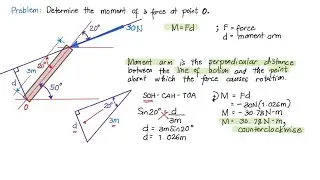 Problem: Determine the moment of a force at point O.
20°
30N
M = Fd
; F = force
d = moment arm
3m
20°
d
50°
O
Moment arm is the perpendicular distance
between the line of action and the point
about which the force causes rotation.
20°
3m
d
SOH - CAH - TOA
Sin20° = d
3m
d = 3mSin20°
d = 1.026m
M = Fd
= -30N(1.026m)
M = -30.78N-m
M = 30.78N-m,
counterclockwise